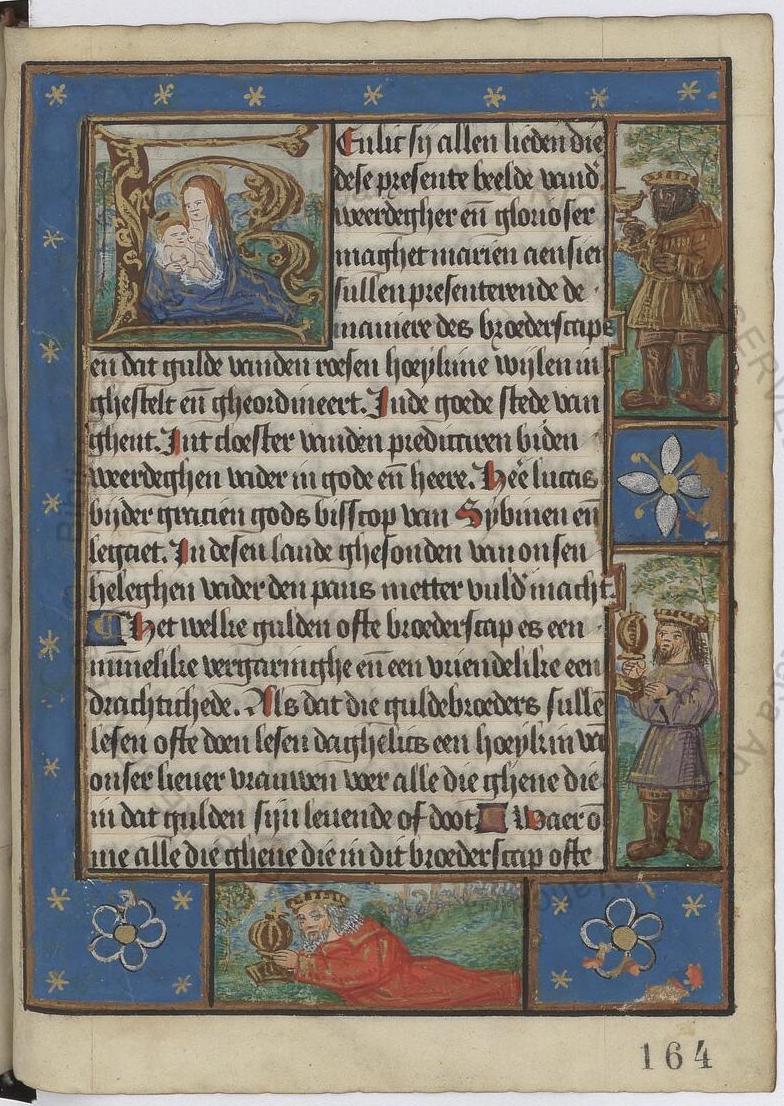 Cnlic sij allen lieden die
dese presente beelde vand
weerdegher en̄ glorioser
maghet marien aensien
sullen presenterende de
maniere des broederscaps
en dat gulde vanden roesen hoeykine wijlen in
ghestelt en̄ gheordineert. Inde goede stede van
ghent. Int cloester vanden predicaren biden
weerdeghen vader in gode en̄ heere. Heē lucas
bijder gracien gods bisscop van Sybinen en̄
legaet. In desen lande ghesonden van onsen
heleghen vader den paus metter vuld macht.
¶ Het welke gulden ofte broederscap es een
minnelike vergaringhe en̄ een vriendelike een
drachtichede. Als dat die guldebroeders sullē
lesen ofte doen lesen daghelics een hoeykin vā
onser liever vrauwen voer alle die ghene die
in dat gulden sijn levende of doot. Waer o
me alle die ghene die in dit broederscap ofte
164